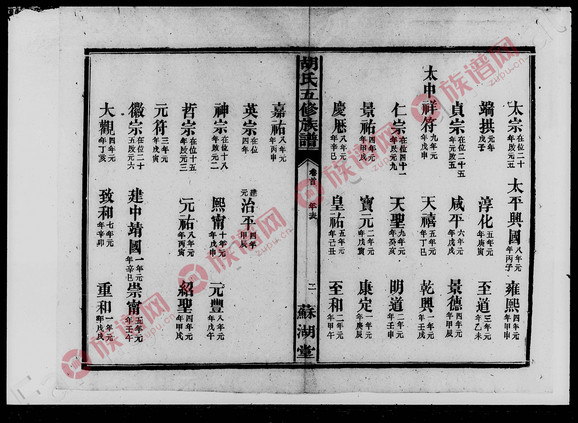 太宗 在位二十 太平興國 八年元 年丙子 雍熙 四年元 年甲申
端拱 二年元 年戊子 淳化 五年元 年庚寅 至道 三年元 年乙未
貞宗 在位二十五 咸平 六年元 景德 四年元 年甲辰
太中祥符 九年元 年戊申 天禧 五年元 年丁巳 乾興 一年元 年壬戌
仁宗 在位四十一 天聖 九年元 年癸亥 明道 二年元 年壬申
景祐 四年元 年甲戌 寶元 二年元 年戊寅 康定 一年元 年庚辰
慶厯 八年元 年辛巳 皇祐 五年元 年己丑 至和 二年元 年甲午
胡氏五修族譜 卷首 年表 二 蘇湖堂
嘉祐 八年元 年丙申
英宗 在位四年 治平 四年 甲辰
神宗 在位十八 熙甯 十年元 年戊申 元豐 八年元 年戊午
哲宗 在位十五 元祐 八年元 年丙寅 紹聖 四年元 年甲戌
元符 三年元 年戊寅
徽宗 在位二十五 建中靖國 一年元 年辛巳 崇甯 五年元 年壬午
大觀 四年元 年丁亥 致和 七年元 年辛卯 重和 一年元 年戊戌
族谱网
zupu.cn